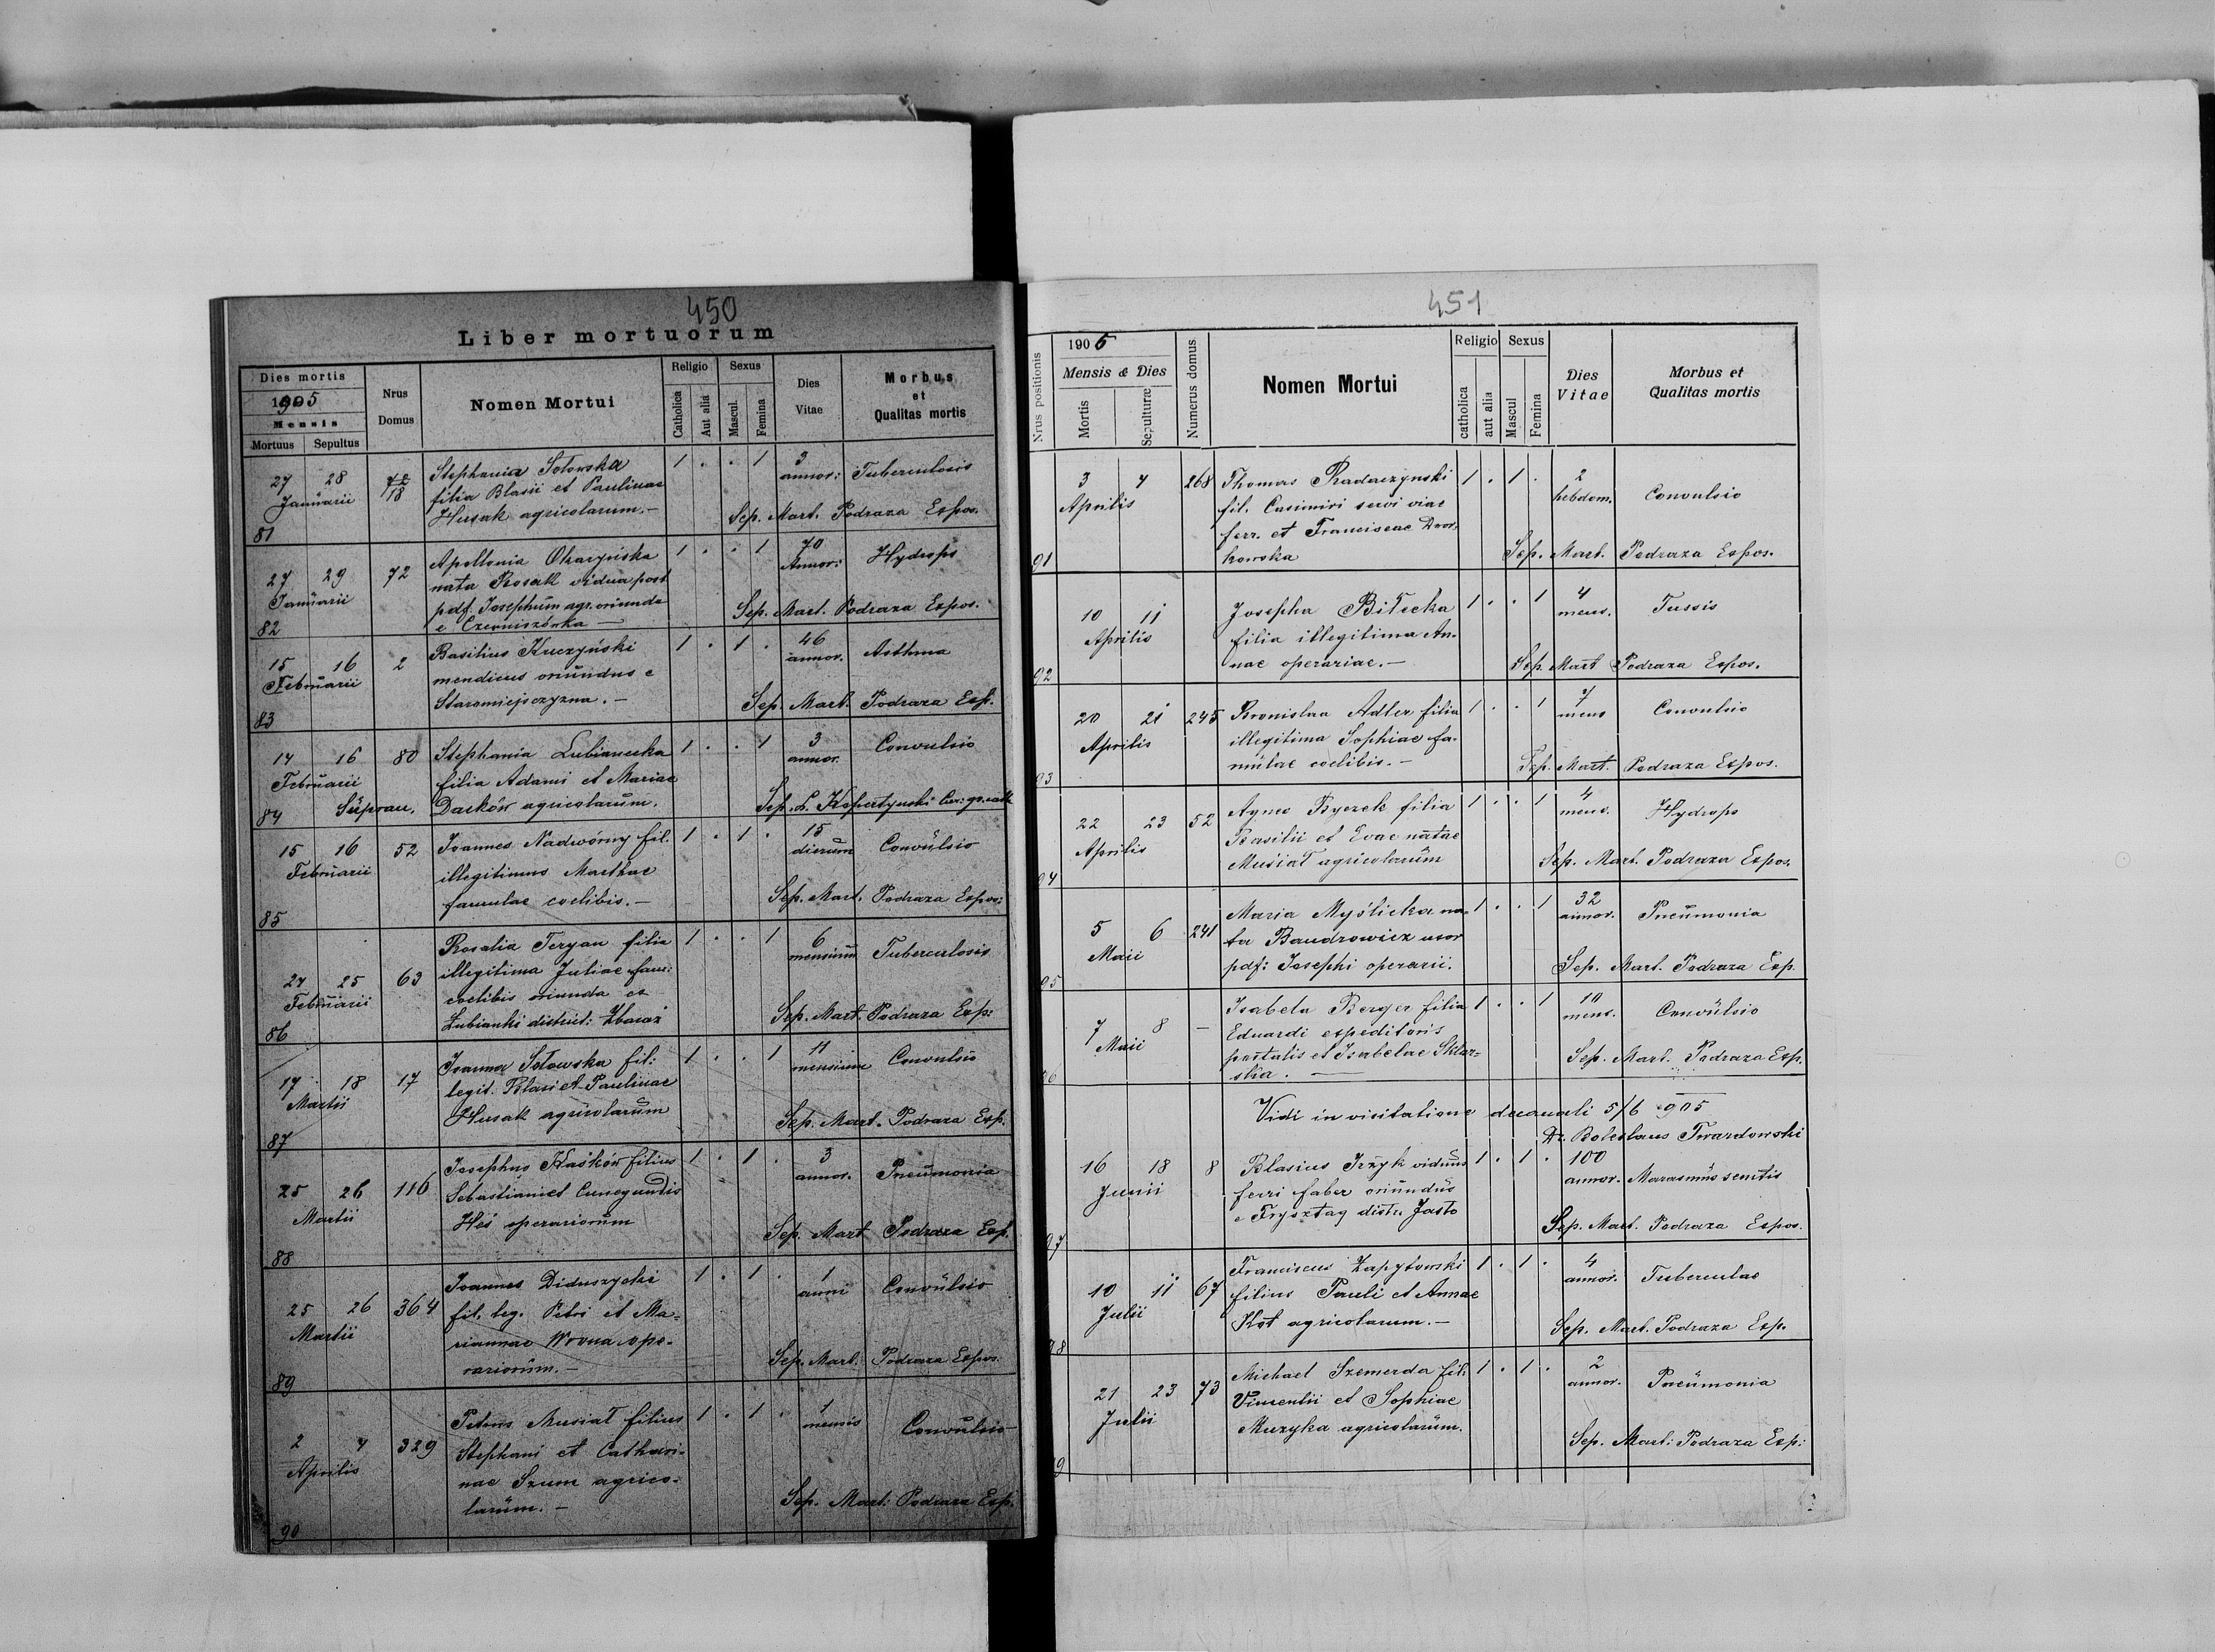 450
Liber mortuorum
Dies mortis
1905
Mensis
Mortuus Sepultus
Nrus
Domus
Nomen Mortui
Religio
Catholica
Aut alia
Sexus
Mascul.
Femina
Dies
Vitae
Morbus
et
Qualitas mortis
27 28 18 Stephania Sotowska 1 . . 1 3 annor: Tuberculosis
Januarii filia Blasii et Paulinae
Husak agricolarum.— Sep. Mart. Podraza Expos.
81
27 29 72 Apollonia 1 . . 1 70 Annor: Hydrops
Januarii nata Kosak vidua post
pdf. Josephum agr. oriunda Sep. Mart. Podraza Expos.
82 e Czerniszówka —
15 16 2 Basilius Kuczyński 1 . 1 . 46 annor. Asthma
Februarii mendicus oriundus e
Staromiejszczyzna.— Sep. Mart. Podraza Exp.
83
14 16 80 Stephania Lubianecka 1 . . 1 3 annor. Convulsio
Februarii filia Adami et Mariae
84 Darków agricolarum. Sep. gr. cath
15 16 52 Joannes Nadworny fil. 1 . 1 . 15 dierum Convulsio
Februarii illegitimus Marthae
famulae coelibis.— Sep. Mart. Podraza Expos:
85
24 25 63 Rosalia Teryan filia 1 . . 1 6 mensium Tuberculosis
Februarii illegitima Juliae fam:
coelibis oriunda ex
86 Lubianki district: Zbaraż Sep. Mart. Podraza Exp:
17 18 17 Joanna Sotowska fil: 1 . . 1 11 mensium Convulsio
Martii legit. Blasi et Paulinae
Husak agricolarum Sep. Mart. Podraza Exp.
87
25 26 116 Josephus Kaśków filius 1 . 1 . 3 annor. Pneumonia
Martii Sebastiani et Cunegundis
Heś operariorum Sep. Mart Podraza Exp.
88
25 26 364 Joannes Diduszycki 1 . 1 . 1 anni Convulsio
Martii fil. leg. Petri et Ma=
riannae Wrona ope-
rariorum.— Sep. Mart. Podraza Expos.
89
2 4 329 Petrus Musiał filius 1 . 1 . 1 mensis Convulsio
Aprilis Stephani et Cathari-
nae Szum agrico-
larum.— Sep. Mart: Podraza Exp.
90
451
Nrus positionis
1905
Mensis & Dies
Mortis
Sepulturæ
Numerus domus
Nomen Mortui
Religio
catholica
aut alia
Sexus
Mascul
Femina
Dies
Vitae
Morbus et
Qualitas mortis
3 4 268 Thomas Radaczynski 1 . 1 . 2 hebdom. Convulsio
Aprilis fil. Casimiri servi viae
ferr. et Franciscae Dwor-
91 kowska Sep. Mart. Podraza Expos.
10 11 Josepha Bitecka 1 . . 1 4 mens. Tussis
Aprilis filia illegitima An-
92 nae operariae.— Sep. Mart Podraza Expos.
20 21 245 Bronislaa Adler filia 1 . . 1 7 mens Convulsio
Aprilis illegitima Sophiae fa-
93 mulae coelibis.— Sep. Mart. Podraza Expos.
22 23 52 Agnes Byczek filia 1 . . 1 4 mens. Hydrops
Aprilis Basilii et Evae natae
94 Musiał agricolarum Sep. Mart. Podraza Expos.
5 6 241 Maria Myślicka na- 1 . . 1 32 annor. Pneumonia
Maii ta Bandrowicz uxor
95 pdf: Josephi operarii. Sep. Mart. Podraza Exp.
7 8 — Isabela Berger filia 1 . . 1 10 mens. Convulsio
Maii Eduardi expeditoris
postalis et Isabelae Sklar=
96 ska.— Sep. Mart. Podraza Exp.
Vidi in visitatione decanali 5/6 905
Dr. Boleslaus Twardowski
16 18 8 Blasius Irzyk viduus 1 . 1 . 100 annor. Marasmus senilis
Junii ferri faber oriundus
97 e Frysztag distr. Jasło Sep. Mart. Podraza Expos.
10 11 67 Franciscus Zapytowski 1 . 1 . 4 annor. Tuberculae
Julii filius Pauli et Annae
98 Kot agricolarum.— Sep. Mart. Podraza Exp.
21 23 73 Michael Szemerda fil: 1 . 1 . 2 annor. Pneumonia
Julii Vincentii et Sophiae
99 Muzyka agricolarum. Sep. Mart: Podraza Exp: